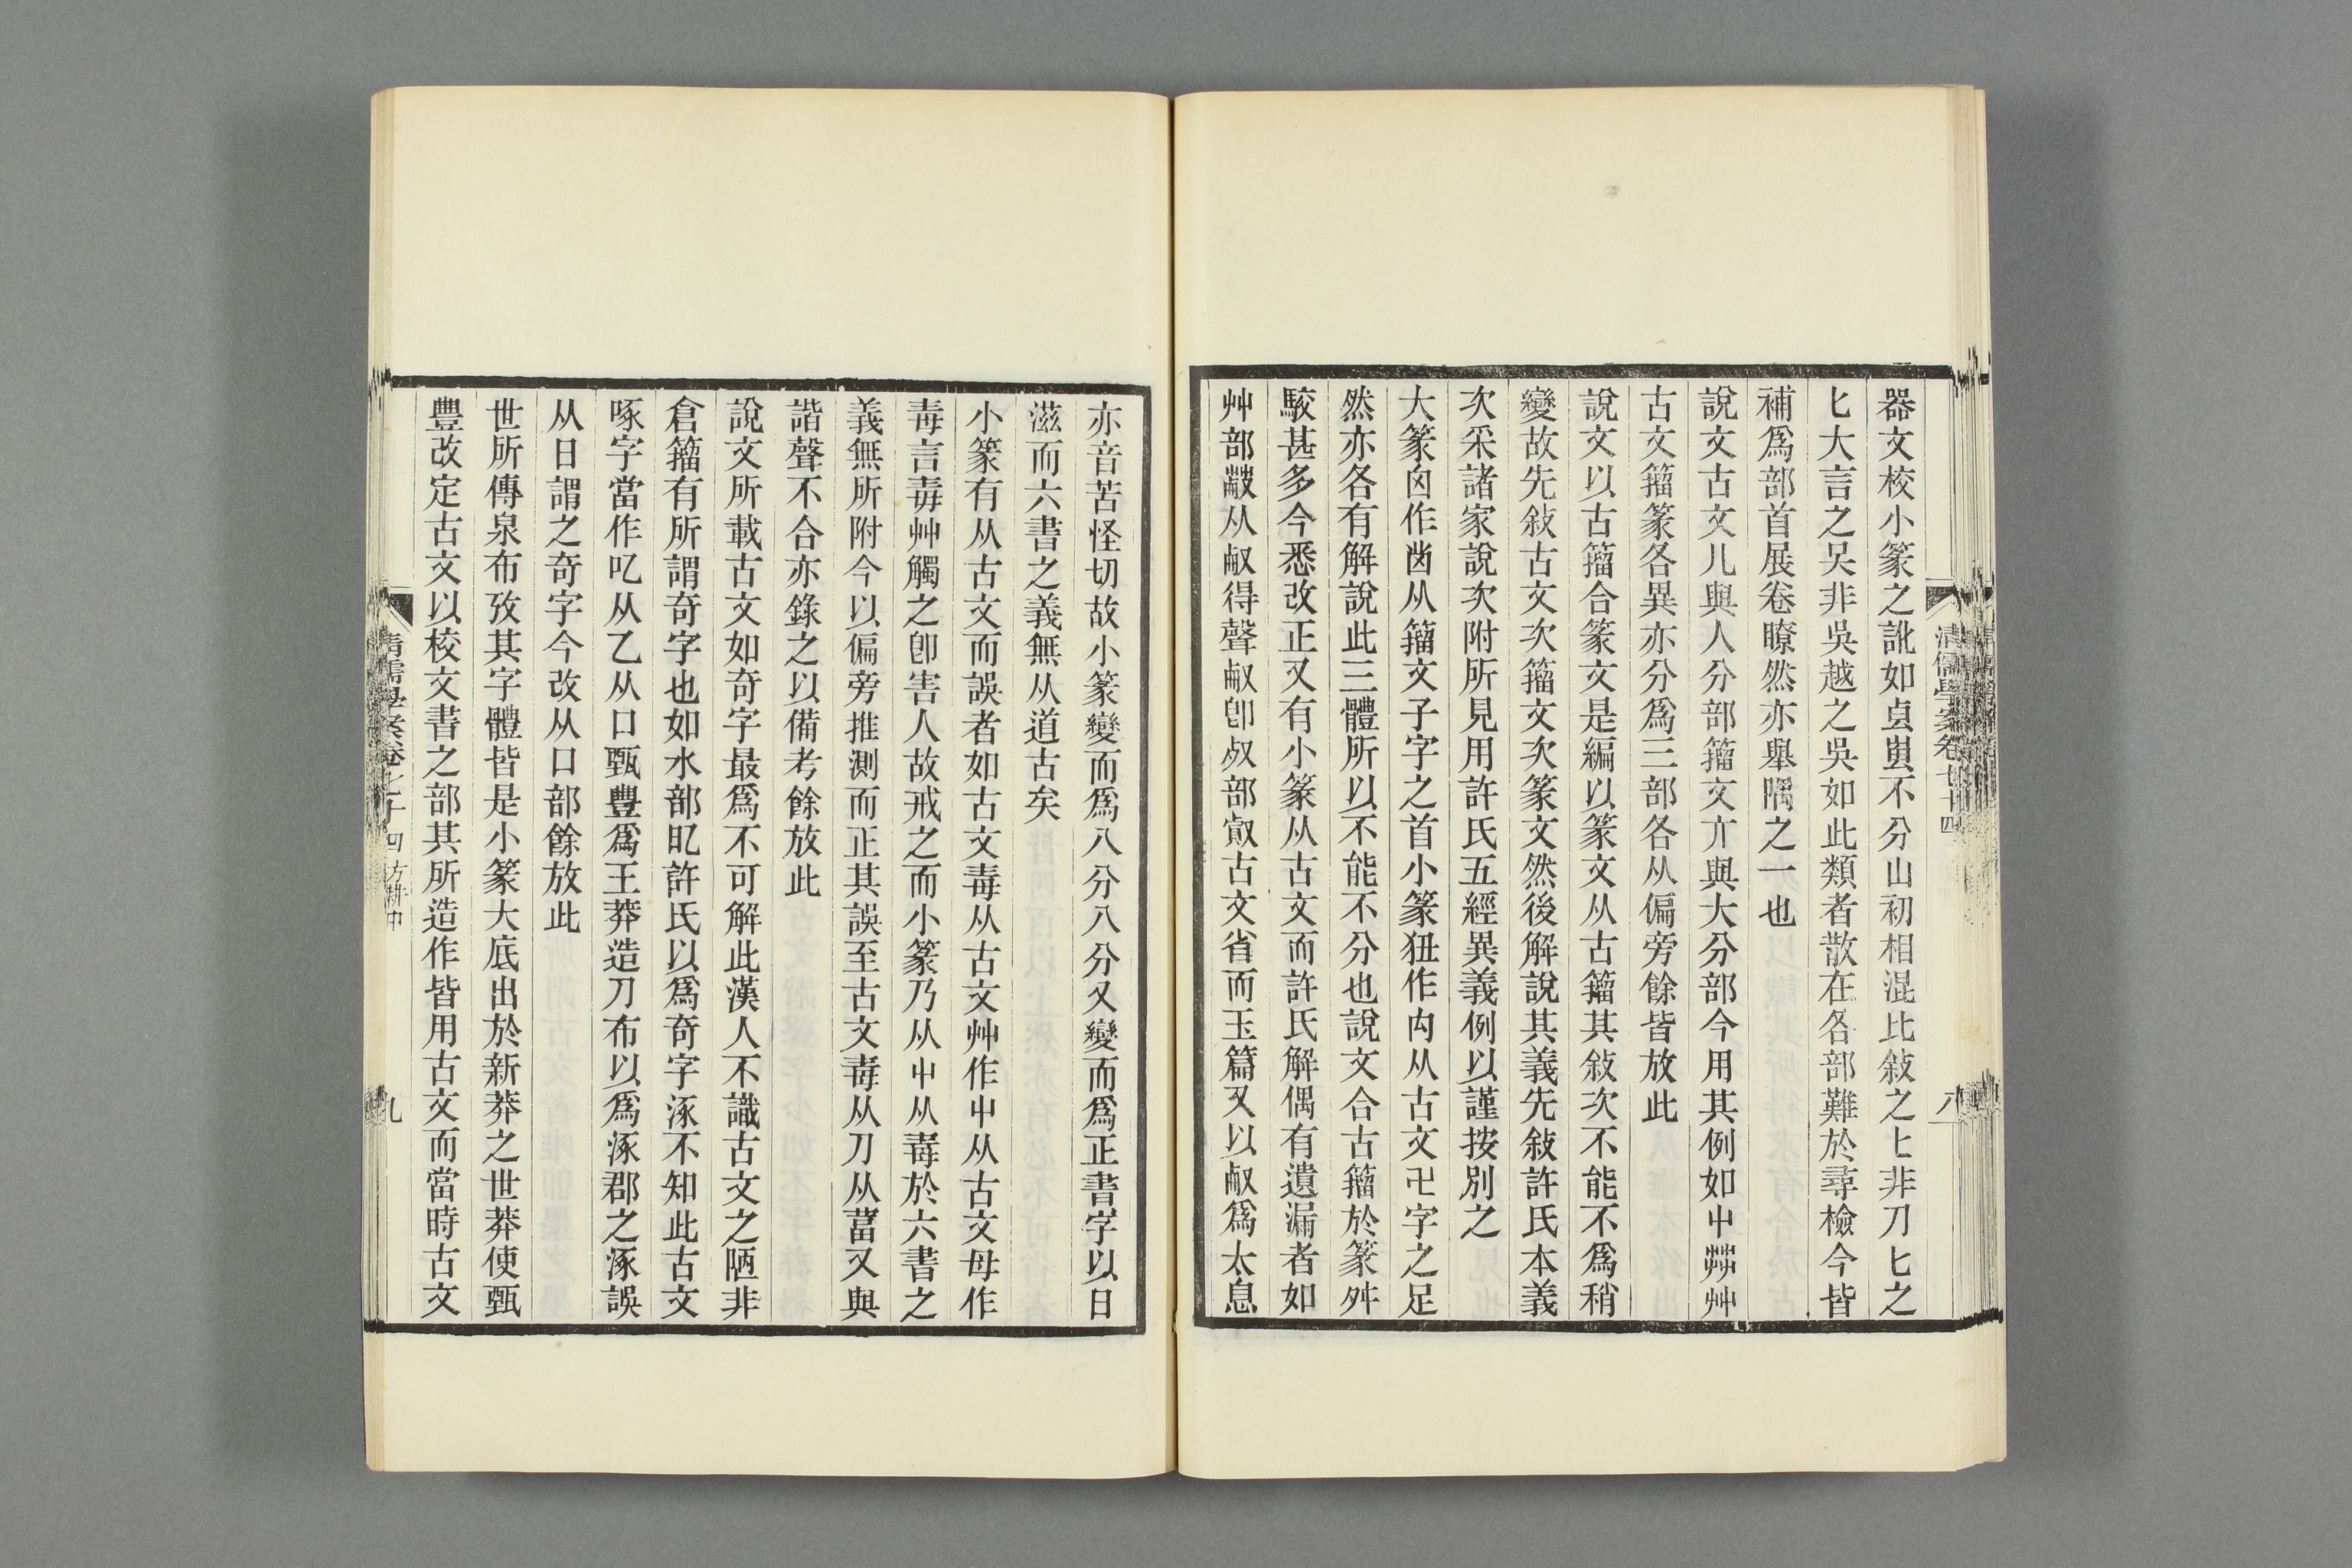 器文校小篆之訛如貞䝿不分山初相混比敍之匕非刀匕之
匕大言之吳非吳越之吳如此類者散在各部難於尋檢今皆
補爲部首展卷瞭然亦舉隅之一也
說文古文儿與人分部籀文亣與大分部今用其例如屮茻艸
古文籀篆各異亦分爲三部各从偏旁餘皆放此
說文以古籀合篆文是編以篆文从古籀其敍次不能不爲稍
變故先敍古文次籀文次篆文然後解說其義先敍許氏本義
次采諸家說次附所見用許氏五經異義例以謹按別之
大篆囟作𠚑从籀文子字之首小篆狃作禸从古文卍字之足
然亦各有解說此三體所以不能不分也說文合古籀於篆舛
駮甚多今悉改正又有小篆从古文而許氏解偶有遺漏者如
艸部蔽从㕡得聲㕡卽𣦻部叡古文省而玉篇又以㕡爲太息
亦音苦怪切故小篆變而爲八分八分又變而爲正書字以日
滋而六書之義無从道古矣
小篆有从古文而誤者如古文毒从古文艸作屮从古文母作
毐言毒艸觸之卽害人故戒之而小篆乃从屮从毐於六書之
義無所附今以偏旁推測而正其誤至古文毒从刀从葍又與
諧聲不合亦錄之以備考餘放此
說文所載古文如奇字最爲不可解此漢人不識古文之陋非
倉籀有所謂奇字也如水部㫐許氏以爲奇字涿不知此古文
啄字當作㕧从乙从口甄豐爲王莽造刀布以爲涿郡之涿誤
从日謂之奇字今改从口部餘放此
世所傳泉布攷其字體皆是小篆大底出於新莽之世莽使甄
豐改定古文以校文書之部其所造作皆用古文而當時古文
清儒學案卷七十四
八
清儒學案卷七十四 方耕中
九